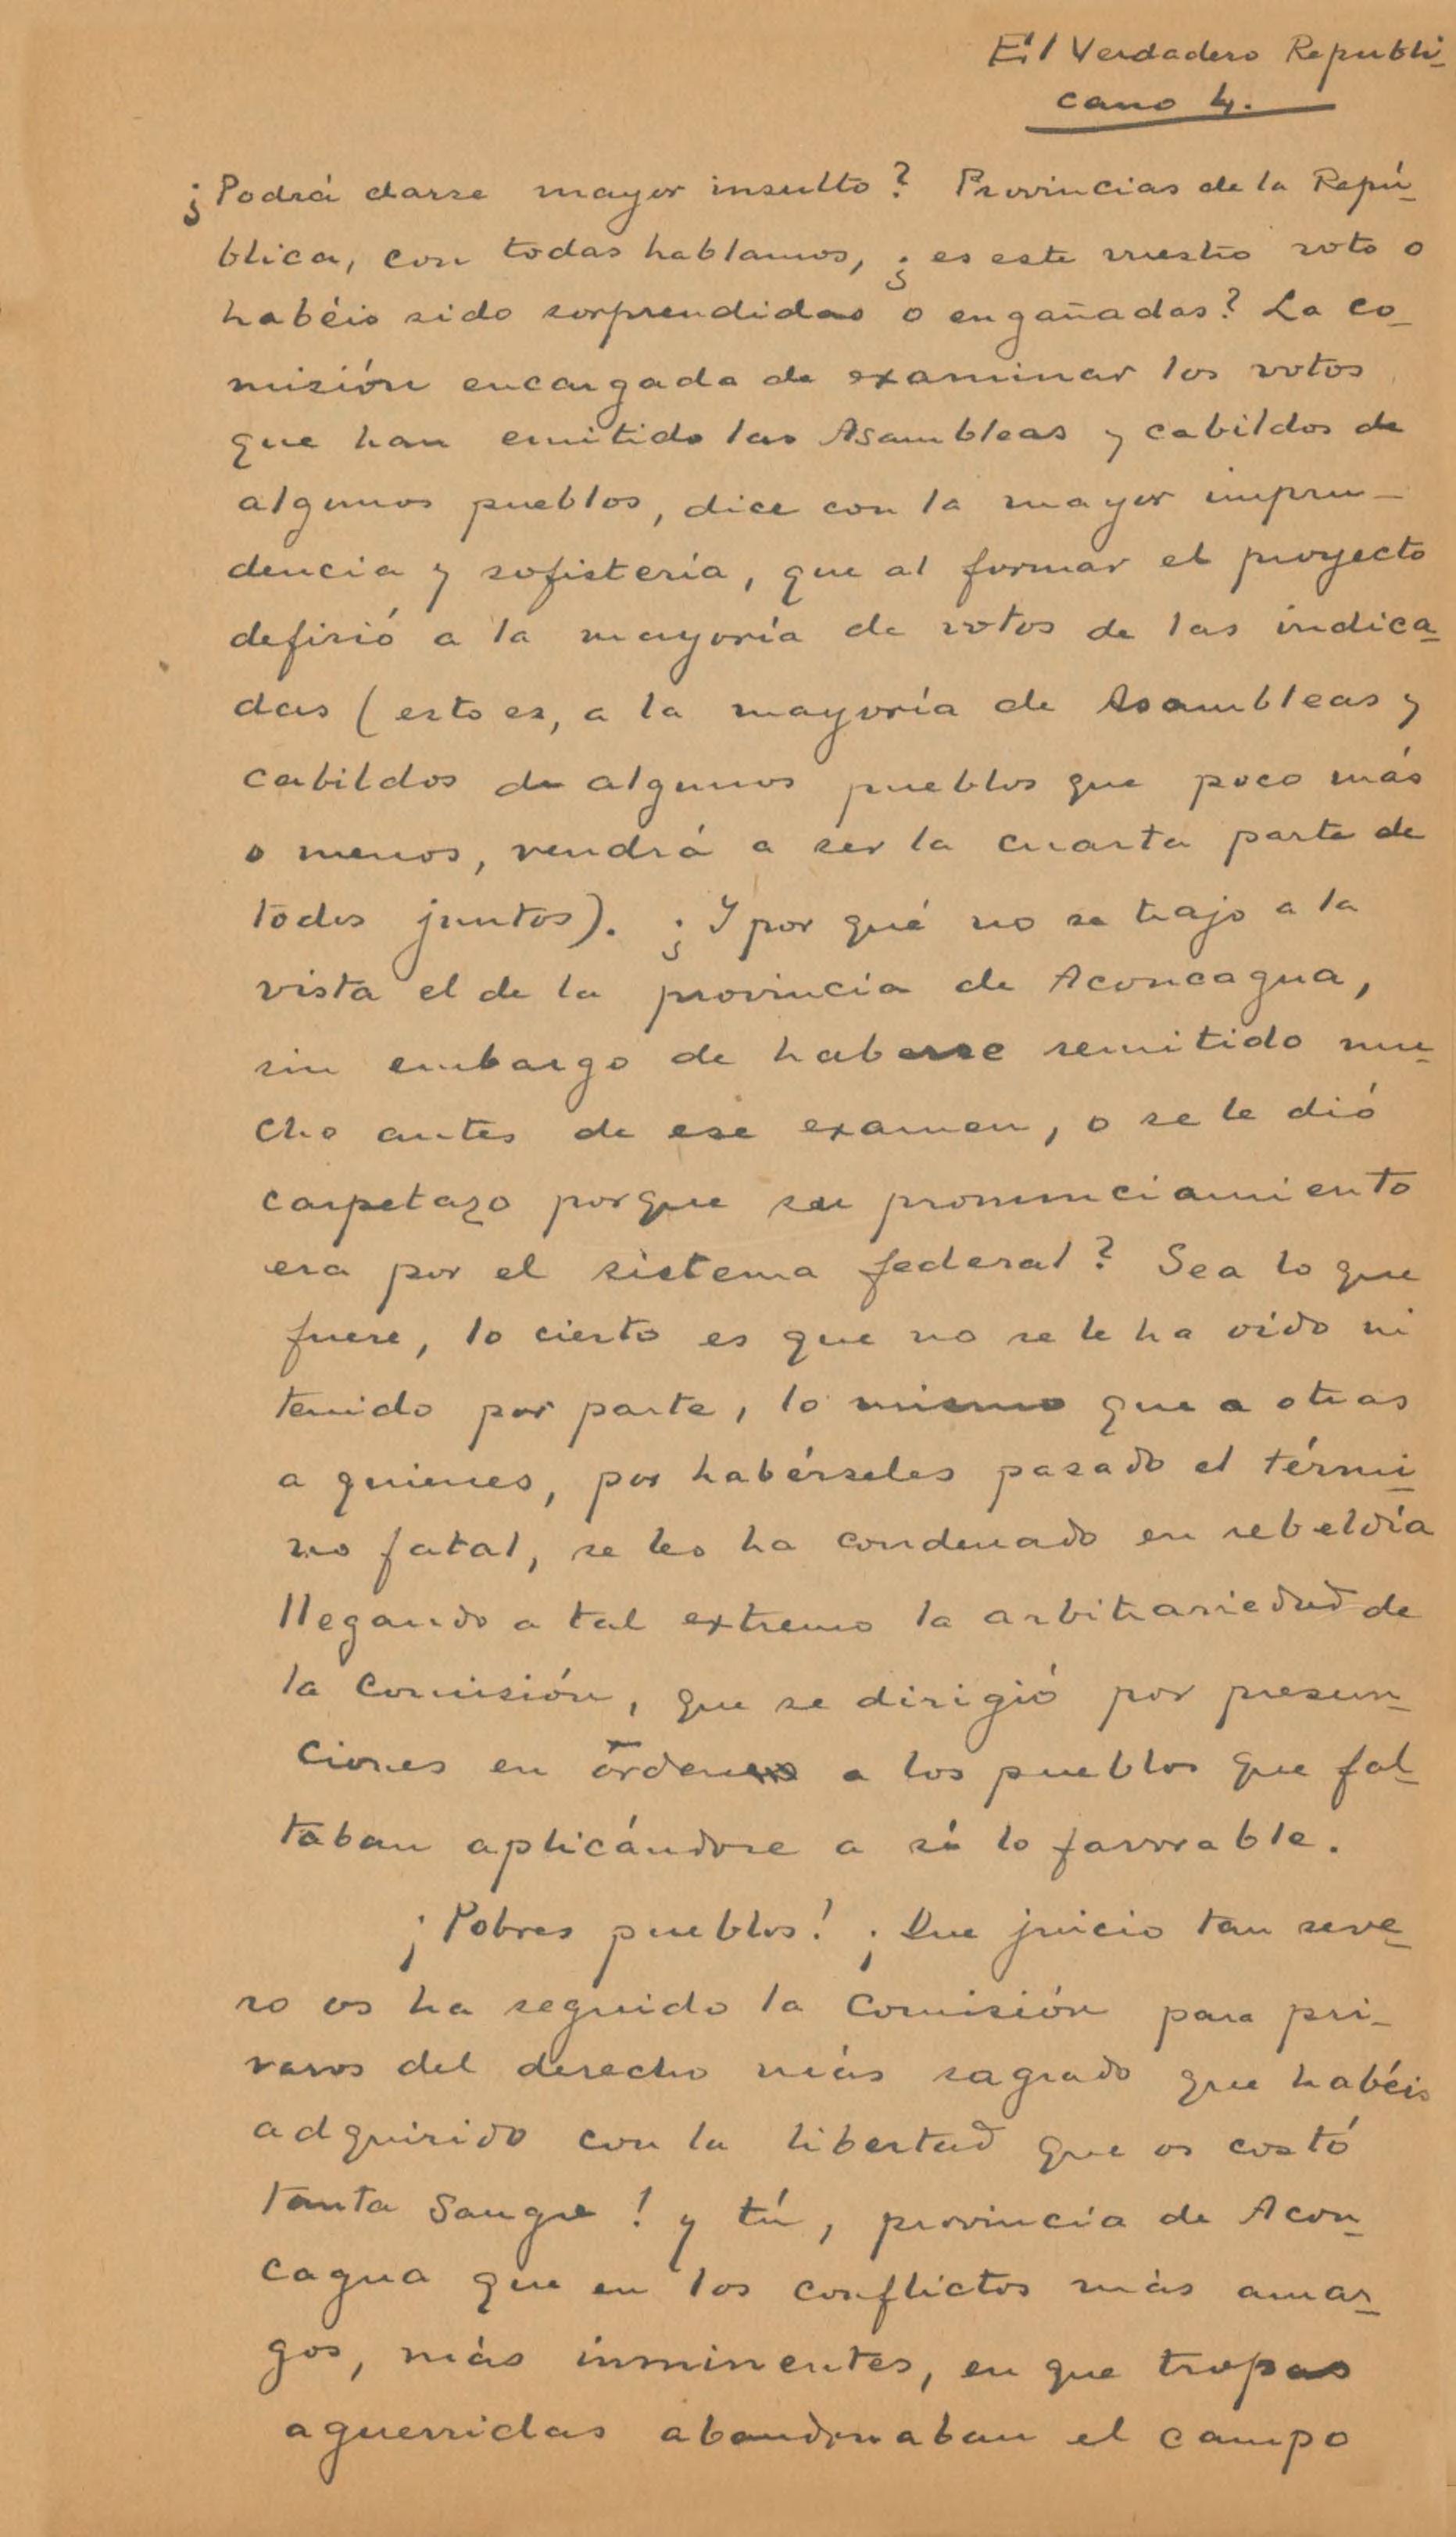 El Verdadero Republi-
cano 4.
¿Podrá darse mayor insulto? Provincias de la Repú-
blica, con todas hablamos, ¿es este vuestro voto o
habéis sido sorprendidas o engañadas? La co-
misión encargada de examinar los votos
que han emitido las Asambleas y cabildos de
algunos pueblos, dice con la mayor impru-
dencia y sofistería, que al formar el proyecto
defirió a la mayoría de votos de las indica-
das (esto es, a la mayoría de Asambleas y
cabildos de algunos pueblos que poco más
o menos, vendrá a ser la cuarta parte de
todos juntos). ¿Y por qué no se trajo a la
vista el de la provincia de Aconcagua,
sin embargo de haberse remitido mu-
cho antes de ese examen, o se le dió
carpetazo porque su pronunciamiento
era por el sistema federal? Sea lo que
fuere, lo cierto es que no se le ha oído ni
tenido por parte, lo mismo que a otras
a quienes, por habérseles pasado el térmi-
no fatal, se les ha condenado en rebeldía
llegando a tal extremo la arbitrariedad de
la Comisión, que se dirigió por presun-
ciones en orden a los pueblos que fal-
taban aplicándose a sí lo favorable.
¡Pobres pueblos! ¡Que juicio tan seve-
ro os ha seguido la Comisión para pri-
varos del derecho más sagrado que habéis
adquirido con la libertad que os costó
tanta sangre! y tú, provincia de Acon-
cagua que en los conflictos más amar-
gos, más inminentes, en que tropas
aguerridas abandonaban el campo